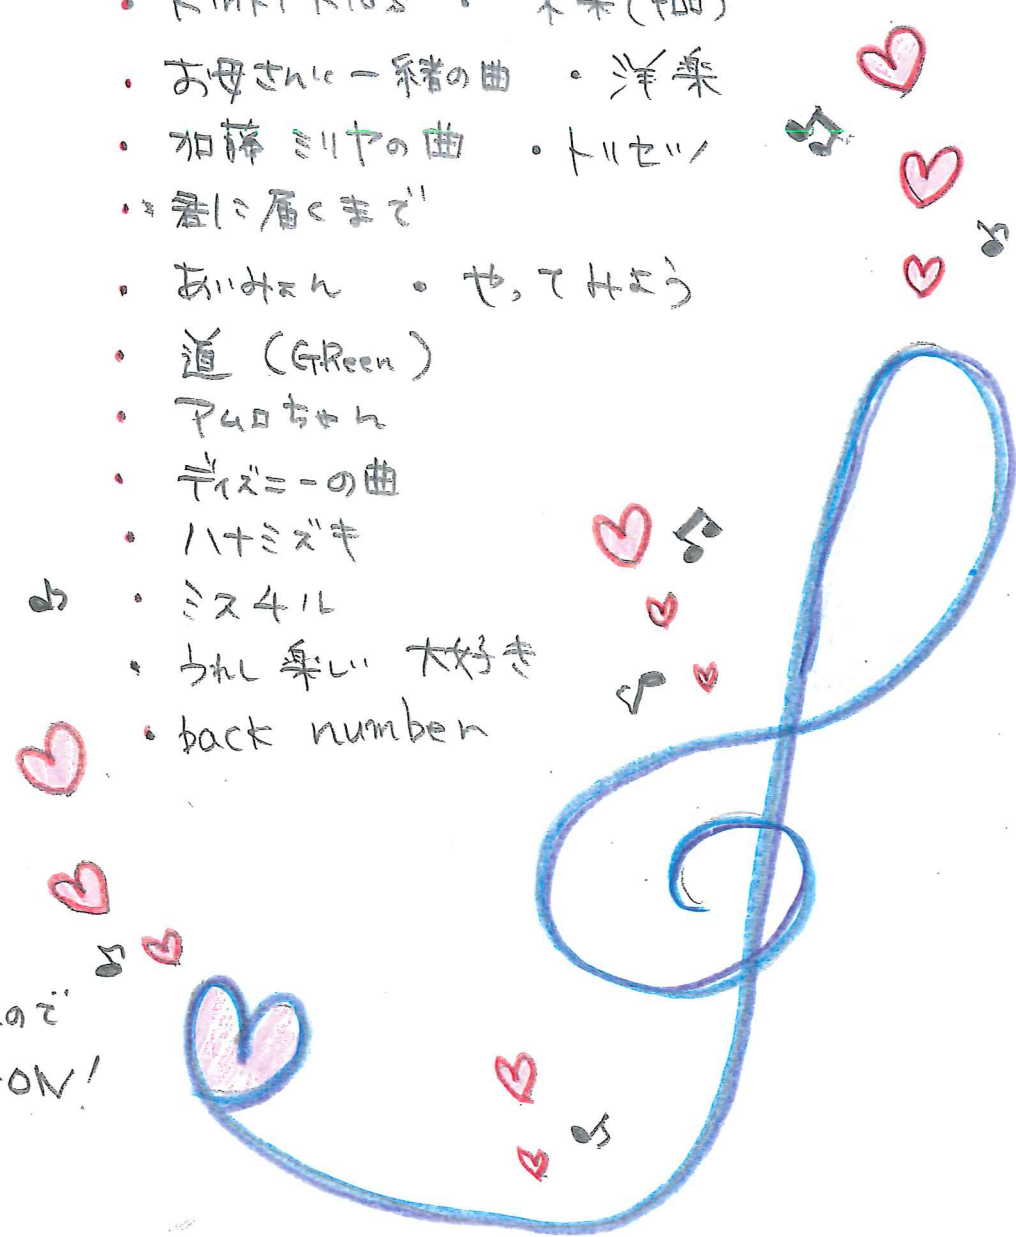 ・お母さんと一緒の曲 ・洋楽
・加藤ミリヤの曲 ・トリセツ
・君に届くまで
・あいみょん ・やってみよう
・道 (GReen)
・アムロちゃん
・ディズニーの曲
・ハナミズキ
・ミスチル
・うれし楽しい 大好き
・back number
ので
ON!